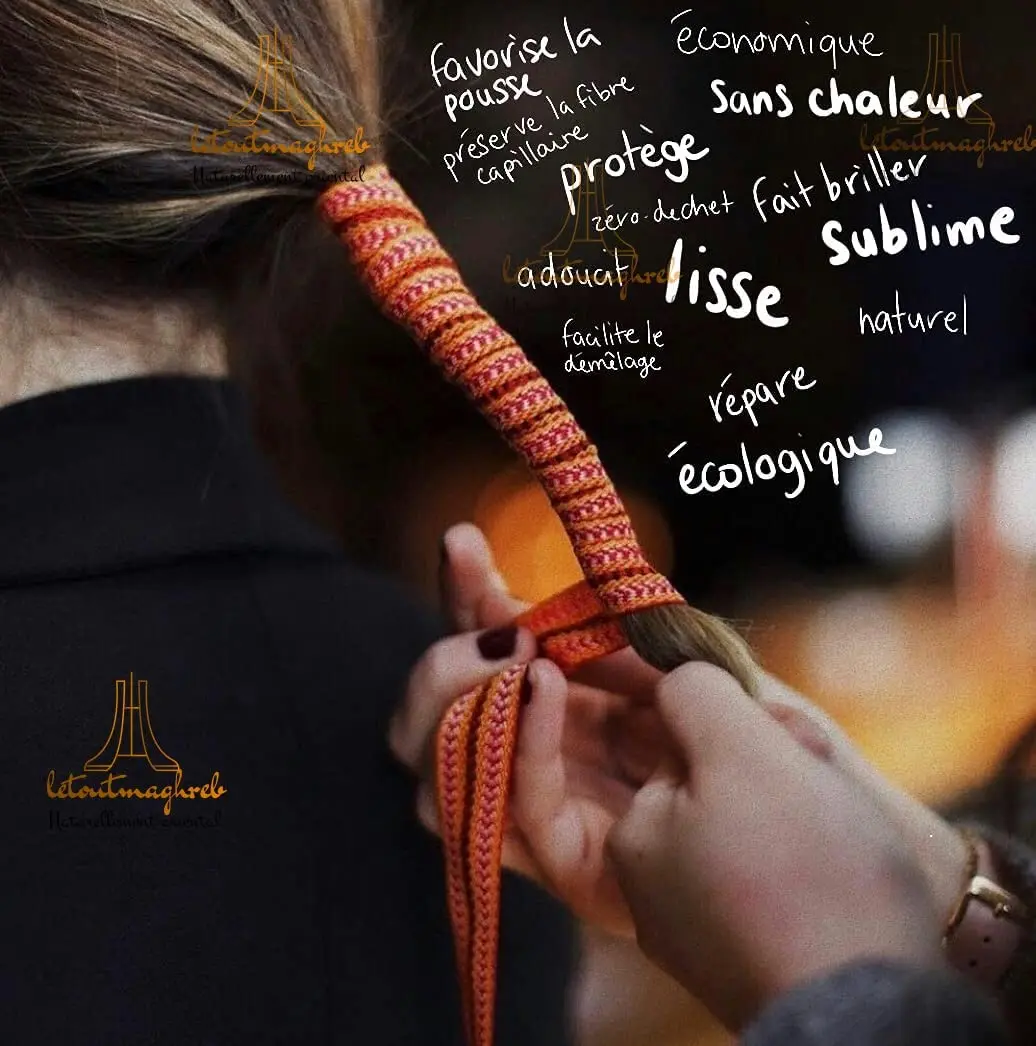 favorise la
pousse
économique
sans chaleur
préserve la fibre
capillaire
protège
zéro-dechet
fait briller
sublime
adoucit
lisse
naturel
facilite le
démêlage
répare
écologique
letoutmaghreb
Naturellement oriental
letoutmaghreb
letoutmaghreb
letoutmaghreb
Naturellement oriental